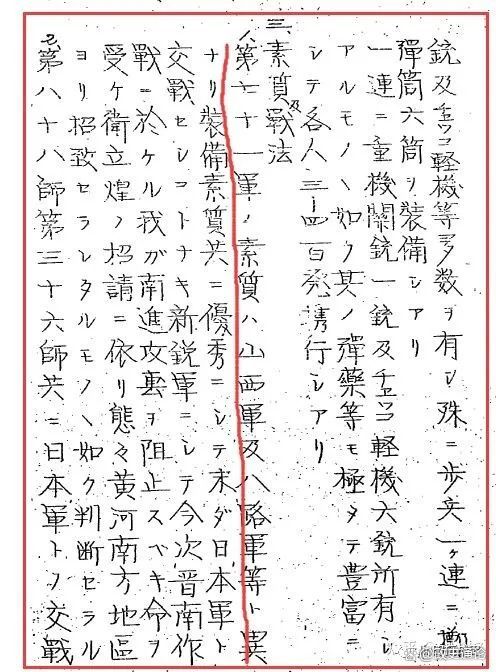 銃及チェコ軽機等多数ヲ有シ殊ニ歩兵一ヶ連ニ擲
彈筒六筒ヲ装備シアリ
一連ニ重機関銃一銃及チェコ軽機六銃所有シ
アルモノヽ如ク其ノ彈藥等モ極メテ豊富ニ
シテ各人三-四百発携行シアリ
三、素質及戰法
1、第七十一軍ノ素質ハ山西軍及八路軍等ト異
ナリ装備素質共ニ優秀ニシテ未ダ日本軍ト
交戰セシコトナキ新鋭軍ニシテ今次晋南作
戰ニ於ケル我が南進攻裏ヲ阻止スベキ命ヲ
受ケ衛立煌ノ招請ニ依リ態々黄河南方地區
ヨリ招致セラレタルモノヽ如ク判断セラル
2、第八十八師第三十六師共ニ日本軍トノ交戰